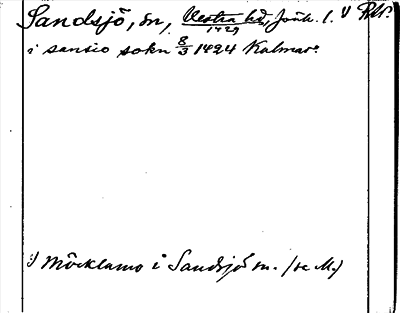 Sandsjö, sn, Vestra hd, Jönk. l. 1) RAP.
1429
i sansio sokn 8/3 1494 Kalmar.
1) Möcklamo i Sandsjö sn. (se M.)